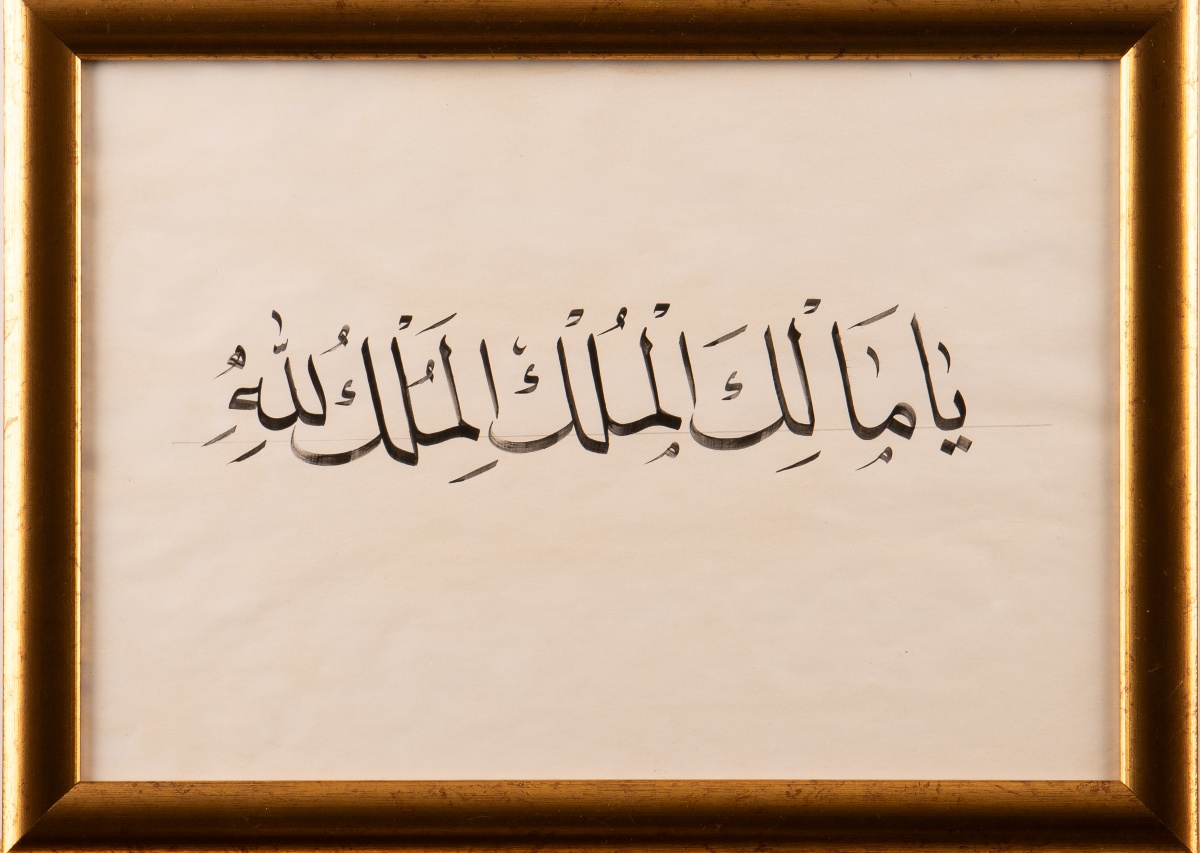 يا مالك الملك الملك لله